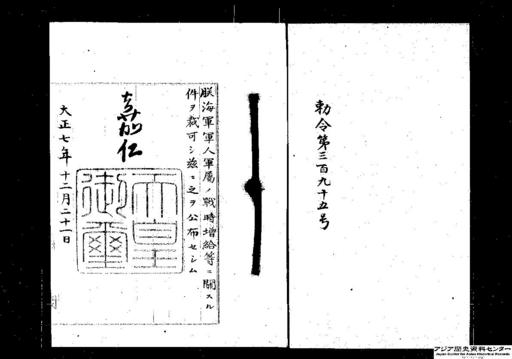 勅令第三百九十五号
朕海軍軍人軍属ノ戦時増給等ニ關スル
件ヲ裁可シ茲ニ之ヲ公布セシム
嘉仁
天皇
御璽
大正七年十二月二十一日
アジア歴史資料センター
Japan Center for Asian Historical Records